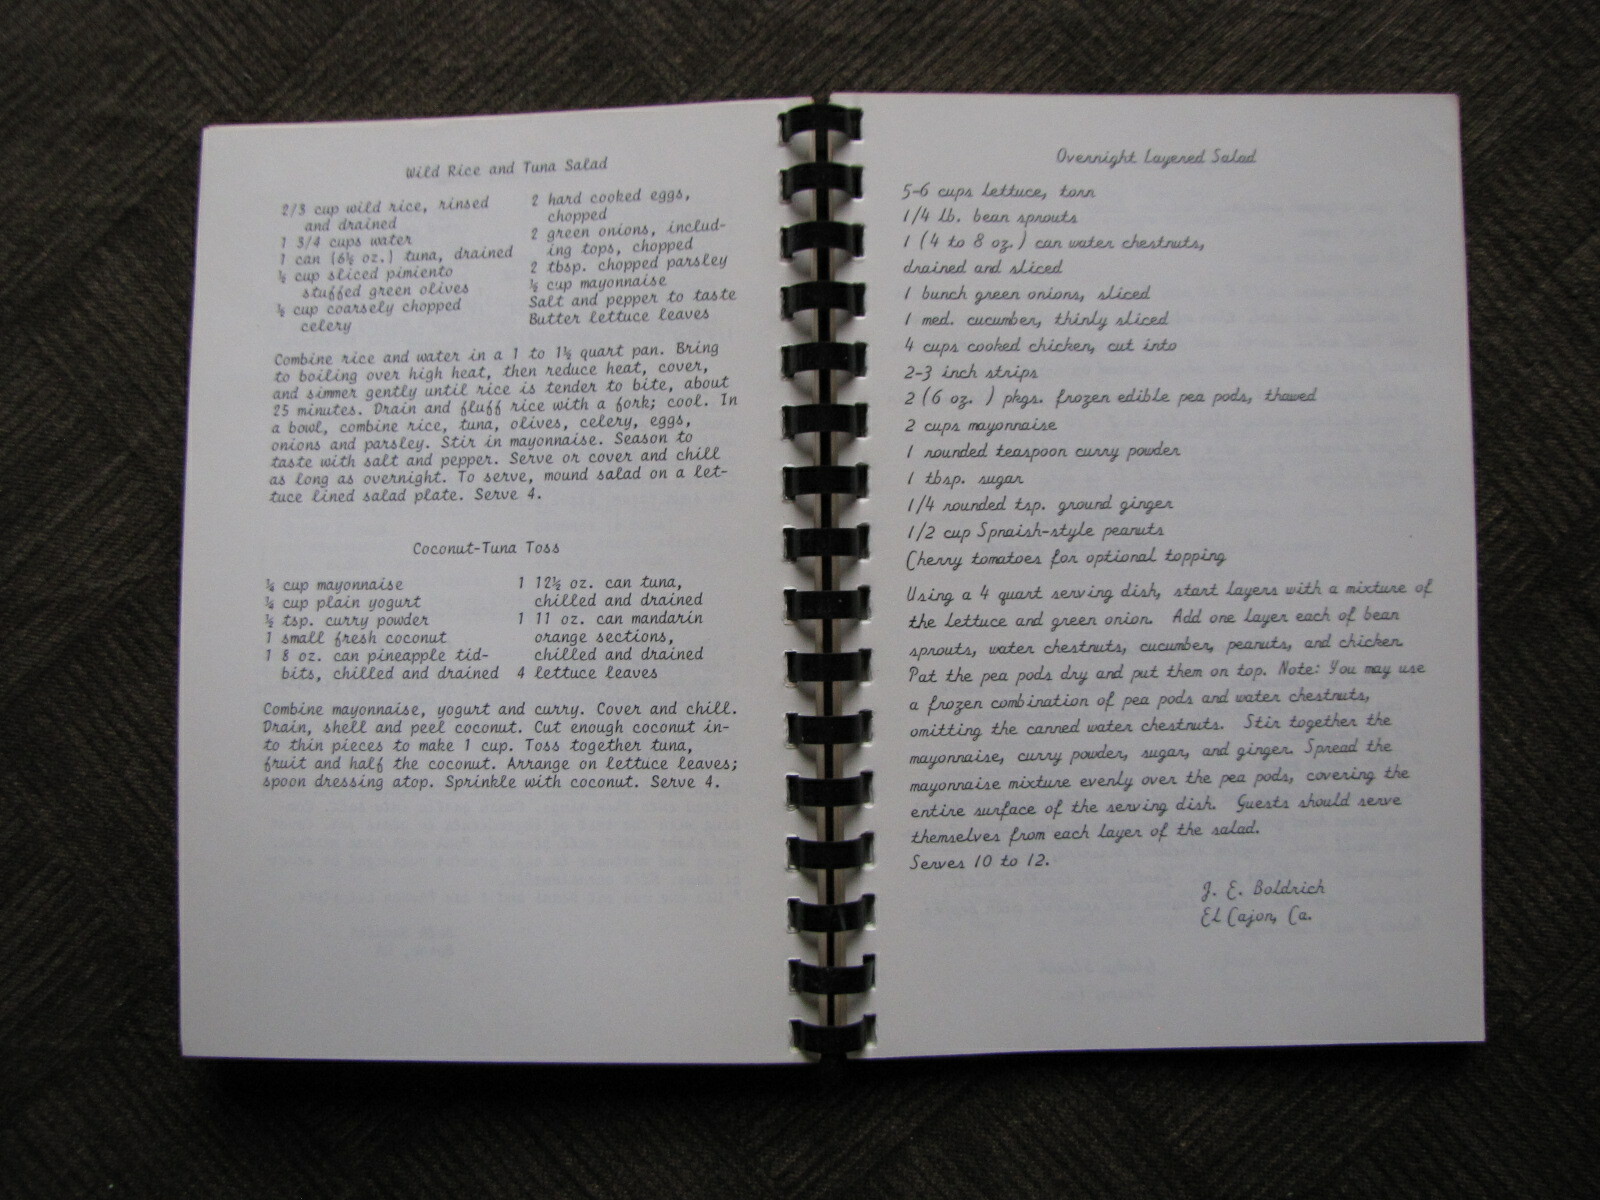 Wild Rice and Tuna Salad
2/3 cup wild rice, rinsed
and drained
1 3/4 cups water
1 can (6½ oz.) tuna, drained
½ cup sliced pimiento
stuffed green olives
½ cup coarsely chopped
celery
2 hard cooked eggs,
chopped
2 green onions, includ-
ing tops, chopped
2 tbsp. chopped parsley
½ cup mayonnaise
Salt and pepper to taste
Butter lettuce leaves
Combine rice and water in a 1 to 1½ quart pan. Bring
to boiling over high heat, then reduce heat, cover,
and simmer gently until rice is tender to bite, about
25 minutes. Drain and fluff rice with a fork; cool. In
a bowl, combine rice, tuna, olives, celery, eggs,
onions and parsley. Stir in mayonnaise. Season to
taste with salt and pepper. Serve or cover and chill
as long as overnight. To serve, mound salad on a let-
tuce lined salad plate. Serve 4.
Coconut-Tuna Toss
¼ cup mayonnaise
¼ cup plain yogurt
½ tsp. curry powder
1 small fresh coconut
1 8 oz. can pineapple tid-
bits, chilled and drained
1 12½ oz. can tuna,
chilled and drained
1 11 oz. can mandarin
orange sections,
chilled and drained
4 lettuce leaves
Combine mayonnaise, yogurt and curry. Cover and chill.
Drain, shell and peel coconut. Cut enough coconut in-
to thin pieces to make 1 cup. Toss together tuna,
fruit and half the coconut. Arrange on lettuce leaves;
spoon dressing atop. Sprinkle with coconut. Serve 4.
Overnight Layered Salad
5-6 cups lettuce, torn
1/4 lb. bean sprouts
1 (4 to 8 oz.) can water chestnuts,
drained and sliced
1 bunch green onions, sliced
1 med. cucumber, thinly sliced
4 cups cooked chicken, cut into
2-3 inch strips
2 (6 oz. ) pkgs. frozen edible pea pods, thawed
2 cups mayonnaise
1 rounded teaspoon curry powder
1 tbsp. sugar
1/4 rounded tsp. ground ginger
1/2 cup Spnaish-style peanuts
Cherry tomatoes for optional topping
Using a 4 quart serving dish, start layers with a mixture of
the lettuce and green onion. Add one layer each of bean
sprouts, water chestnuts, cucumber, peanuts, and chicken.
Pat the pea pods dry and put them on top. Note: You may use
a frozen combination of pea pods and water chestnuts,
omitting the canned water chestnuts. Stir together the
mayonnaise, curry powder, sugar, and ginger. Spread the
mayonnaise mixture evenly over the pea pods, covering the
entire surface of the serving dish. Guests should serve
themselves from each layer of the salad.
Serves 10 to 12.
J. E. Boldrich
El Cajon, Ca.